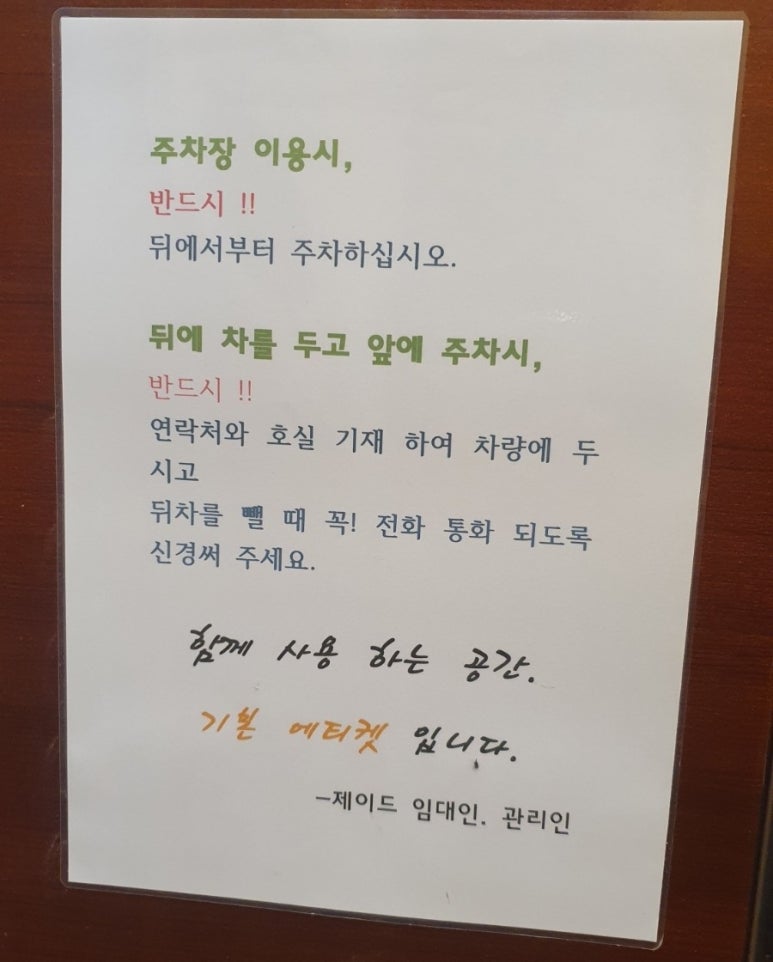 주차장 이용시,
반드시 !!
뒤에서부터 주차하십시오.
뒤에 차를 두고 앞에 주차시,
반드시 !!
연락처와 호실 기재 하여 차량에 두
시고
뒤차를 뺄 때 꼭! 전화 통화 되도록
신경써 주세요.
함께 사용 하는 공간.
기본 에티켓 입니다.
-제이드 임대인. 관리인